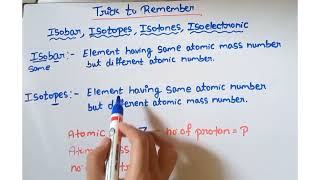 Trick to Remember
Isobar, Isotopes, Isotones, Isoelectronic
Isobar:- Element having same atomic mass number
same but different atomic number.
Isotopes:- Element having same atomic number
but different atomic mass number.
Atomic no of proton = P
Atomic
no